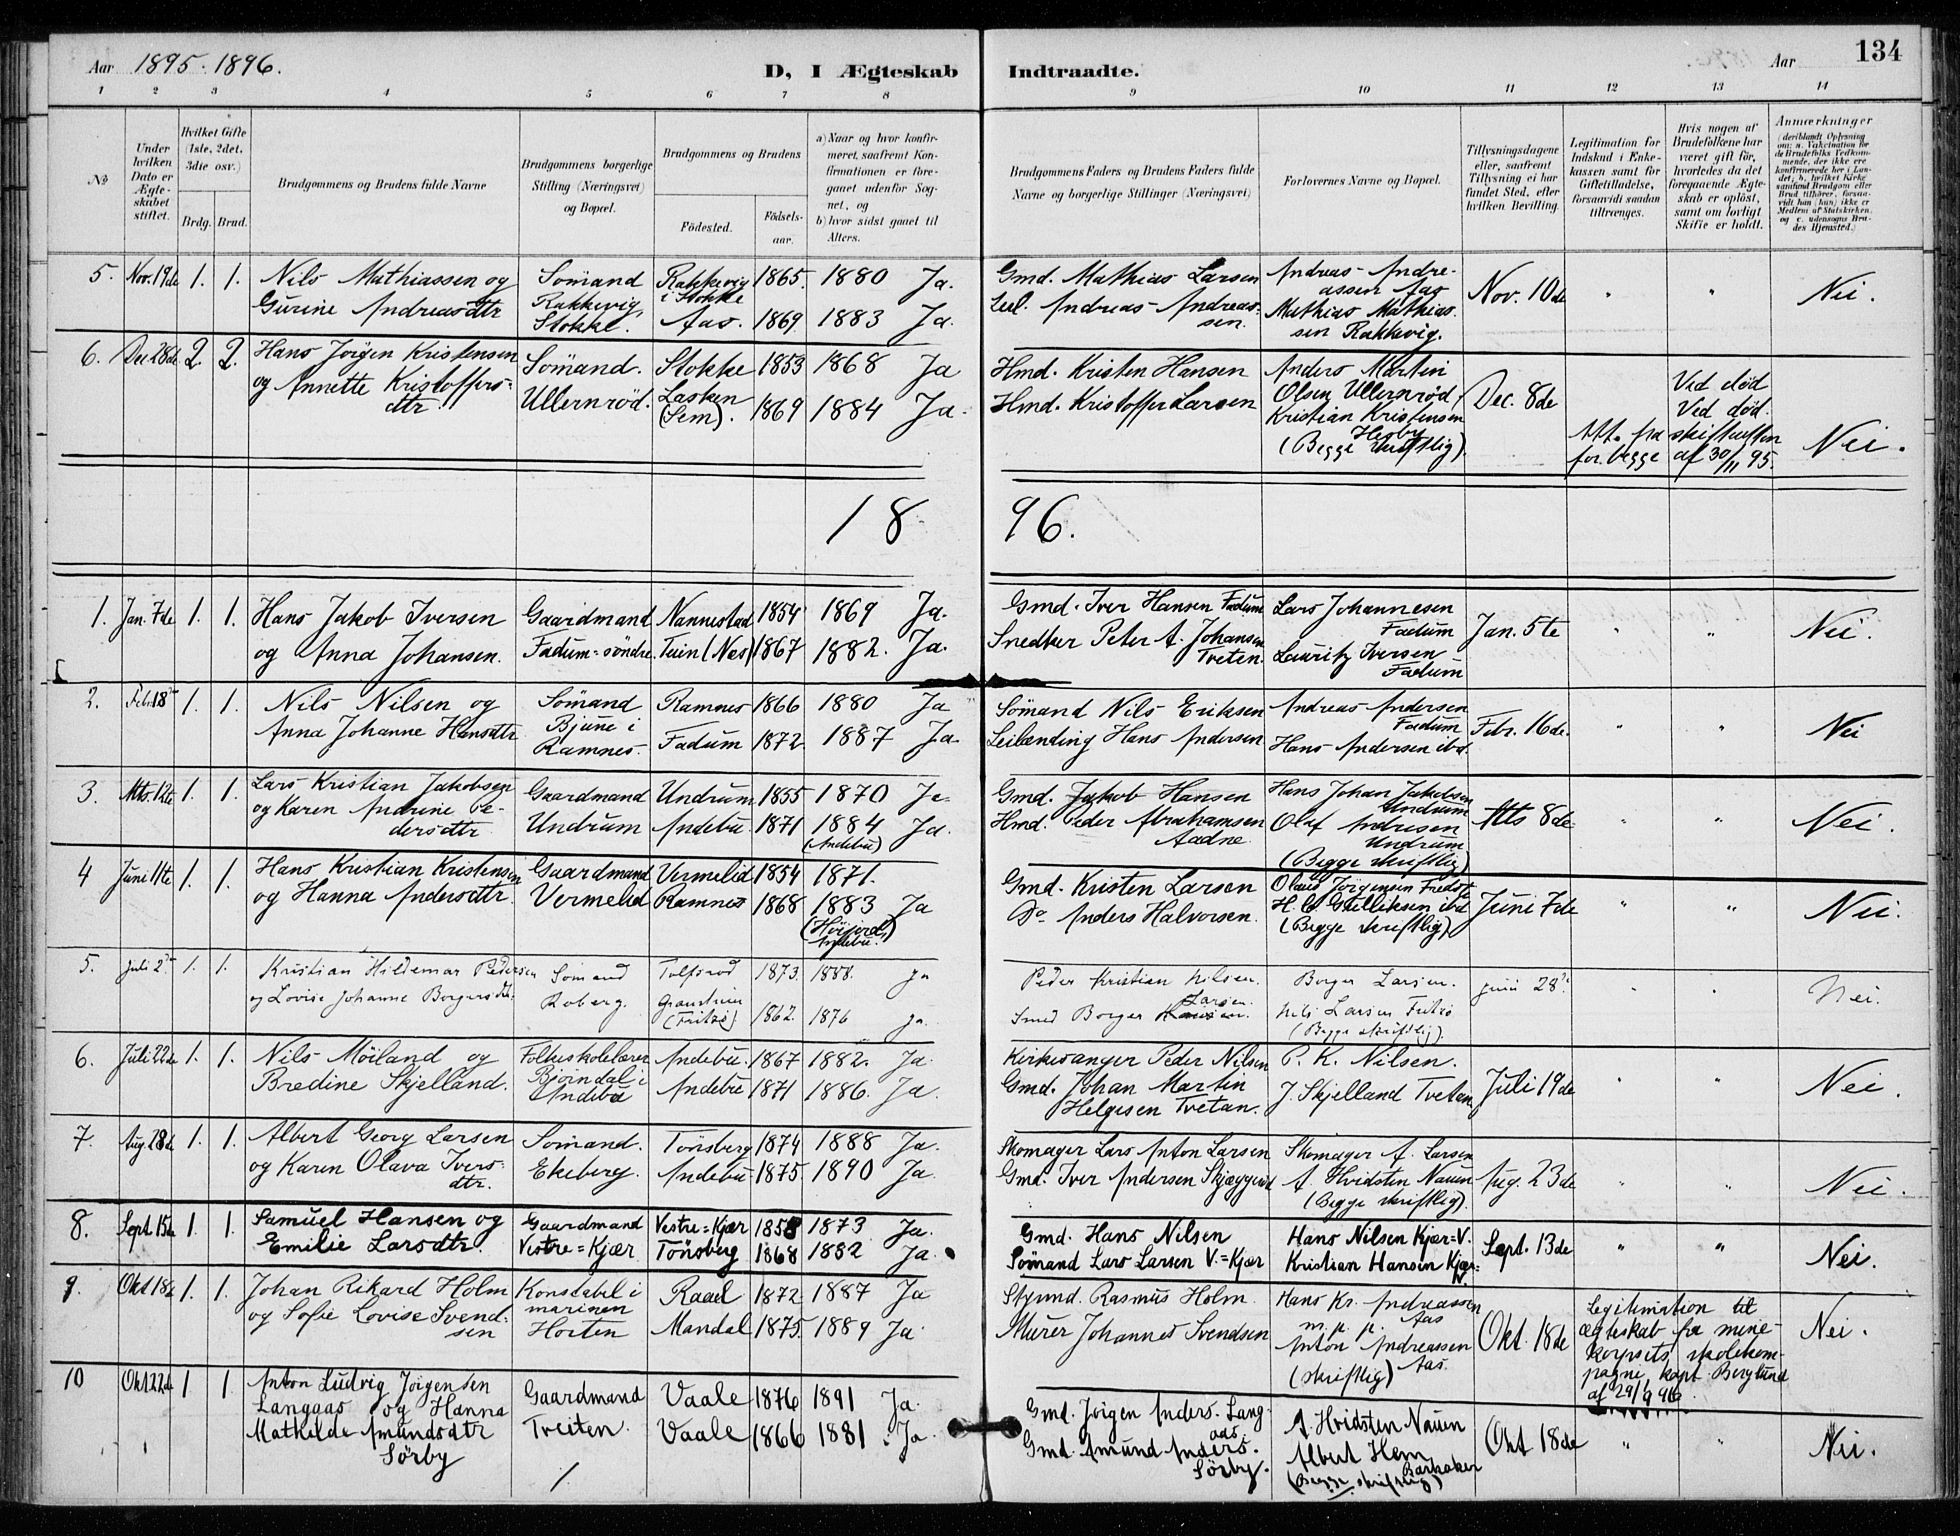 Aar 1895-1896.
D, I Ægteskab
Indtraadte.
Aar
134
1 2 3 4 5 6 7 8 9 10 11 12 13 14
No
Under hvilken Dato er Ægteskabet stiftet.
Hvilket Gifte (1ste, 2det, 3die osv.)
Brdg. Brud.
Brudgommens og Brudens fulde Navne
Brudgommens borgerlige Stilling (Næringsvei) og Bopæl.
Brudgommens og Brudens
Födested.
Födselsaar.
a) Naar og hvor konfirmeret, saafremt Konfirmationen er foregaaet udenfor Sognet, og
b) hvor sidst gaaet til Alters.
Brudgommens Faders og Brudens Faders fulde Navne og borgerlige Stillinger (Næringsvei).
Forlovernes Navne og Bopæl.
Tillysningsdagene eller, saafremt Tillysning ei har fundet Sted, efter hvilken Bevilling
Legitimation for Indskud i Enkekassen samt for Giftetilladelse, forsaavidt saadan tiltrænges.
Hvis nogen af Brudefolkene har været gift för, hvorledes da det foregaaende Ægteskab er oplöst, samt om lovligt Skifte er holdt.
Anmærkninger
5. Nov. 19de 1. 1. Nils Mathiassen og
Gurine Andreasdtr
Sömand
Rakkevig
Stokke.
Rakkevig
i Stokke 1865. 1880 Ja.
Aas. 1869 1883 Ja.
Gmd. Mathias Larsen
Leil. Andreas Andreassen.
Andreas Andreassen Aas
Mathias Mathiassen Rakkevig.
Nov. 10de " " Nei.
6. Dec 28de 2. 2. Hans Jörgen Kristensen
og Annette Kristoffersdtr
Sömand.
Ullernröd.
Stokke 1853 1868 Ja
Lasken
(Sem). 1869 1884 Ja.
Hmd. Kristen Hansen
Hmd. Kristoffer Larsen
Anders Martin
Olsen Ullernröd,
Kristian Kristensen
(Begge skriftlig).
Dec. 8de
Att. fra
for begge
Ved död
Ved död.
skifteatten
af 30/11 95.
Nei.
1896.
1. Jan. 7de 1. 1. Hans Jakob Iversen
og Anna Johansen.
Gaardmand
Fadum=söndre.
Nannestad 1854 1869 Ja.
Tuin (Næs) 1867 1882. Ja.
Gmd. Iver Hansen Fadum
Snedker Peter A. Johansen
Tveten.
Lars Johannesen
Fadum
Lauritz Iversen
Fadum
Jan. 5te " " Nei.
2. Febr. 18 1. 1. Nils Nilsen og
Anna Johanne Hansdtr
Sömand
Bjune i
Ramnes.
Ramnes 1866 1880 Ja
Fadum 1872 1887 Ja
Sömand Nils Eriksen
Leilænding Hans Andersen
Andreas Andersen
Fadum
Hans Andersen ibd.
Febr. 16de. " " Nei
3. Mts. 12te 1. 1. Lars Kristian Jakobsen
og Karen Andrine Pedersdtr
Gaardmand
Undrum
Undrum 1855 1870 Ja
Andebu 1871 1884 Ja.
(Andebu)
Gmd. Jakob Hansen
Hmd. Peder Abrahamsen
Aadne
Hans Johan Jakobsen
Undrum
Olaf Andresen
Undrum
(Begge skriftlig)
Mts 8de " " Nei.
4 Juni 11te 1. 1. Hans Kristian Kristensen
og Hanna Andersdtr.
Gaardmand
Vermelid
Vermelid 1854 1871.
Ramnes 1868 1883 Ja
(Höijord
Andebu.)
Gmd. Kristen Larsen
Do Anders Halvorsen.
Olaus Jörgensen
H. C. Gulliksen ibd
(Begge skriftlig)
Juni 7de " " Nei.
5. Juli 2 1. 1. Kristian Hildemar Pedersen
og Lovise Johanne Borgersdtr.
Sömand
Roberg.
Tolfsrod 1873. 1888. Ja
(Fritzö) 1862. 1876 ja.
Peder Kristian Nilsen.
Smed Borger Larsen.
Borger Larsen.
Nils Larsen
(Begge skriftlig).
Juni 28 " " Nei.
6. Juli 22de 1. 1. Nils Möiland og
Bredine Skjelland.
Folkeskolelærer
Bjöindal i
Andebu
Andebu. 1867 1882. Ja.
Andebu 1871 1886. Ja.
Kirkesanger Peder Nilsen
Gmd. Johan Martin
Helgesen Tvetan.
P. K. Nilsen.
J. Skjelland Tvetan
Juli 19de " " Nei.
7. Aug. 28de 1. 1. Albert Georg Larsen
og Karen Olava Iversdtr.
Sömand.
Ekeberg.
Tönsberg 1874 1888 Ja.
Andebu 1875. 1890 Ja.
Skomager Lars Anton Larsen
Gmd. Iver Andersen
Skomager A. Larsen
A. Hvidsten Nauen
(Begge skriftlig).
Aug. 23de " " Nei.
8. Sept. 15de 1. 1. Samuel Hansen og
Emilie Larsdtr.
Gaardmand
Vestre=Kjær
Vestre=Kjær 1858 1873. Ja.
Tönsberg 1868 1882 Ja.
Gmd. Hans Nilsen
Sömand Lars Larsen V.=Kjær
Hans Nilsen Kjær=V.
Kristian Hansen Kjær=V.
Sept. 13de " " Nei.
9. Okt 18de 1. 1. Johan Rikard Holm
og Sofie Lovise Svendsen
Konstabel i
marinen
Horten
Raael 1872 1887 Ja
Mandal 1875. 1889 Ja
Rasmus Holm.
Murer Johannes Svendsen
Hans Kr. Andreassen
m. p. p. Aas
Anton Andreassen
(skriftlig) Aas.
Okt. 18de
Legitimation til
ægteskab fra minekorpsets skolekompagni, kapt. Berglund
af 29/9 96.
Nei.
10 Okt 22de 1 1. Anton Ludvig Jörgensen
Langaas og Hanna
Mathilde Amundsdtr
Sörby
Gaardmand
Treiten.
Vaale 1876 1891 Ja.
Vaale 1866 1881 Ja.
Gmd. Jörgen Anders. Langaas.
Gmd. Amund Anders.
Sörby.
A. Hvidsten Nauen
Albert Hem
Barkaker
(Begge skriftlig)
Okt 18de " " Nei.